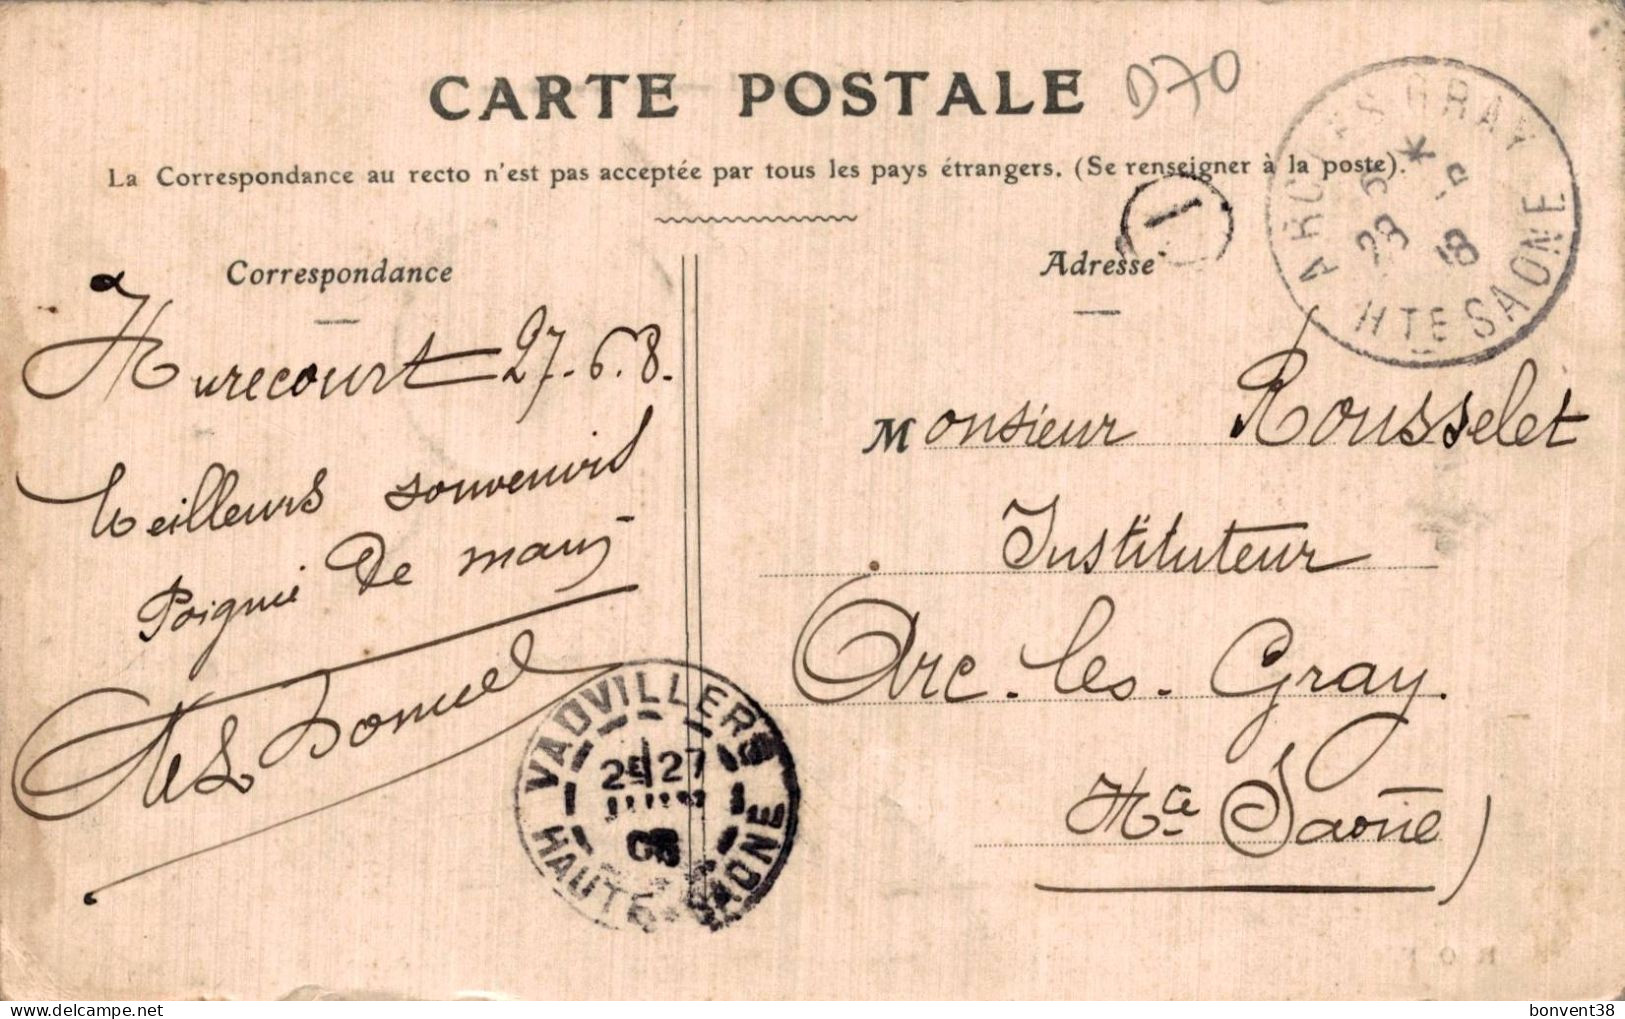 CARTE POSTALE
D70
La Correspondance au recto n'est pas acceptée par tous les pays étrangers. (Se renseigner à la poste).
ARC LES GRAY
28 8
HTE SAONE
Correspondance
Adresse
Hurecourt 27.6.8.
Meilleurs souvenirs
Poignée de main
Monsieur Rousselet
Instituteur
Arc-les-Gray.
Hte Saône
VAUVILLERS
2E 27
JUIN
08
HAUTE-SAONE
bonvent38